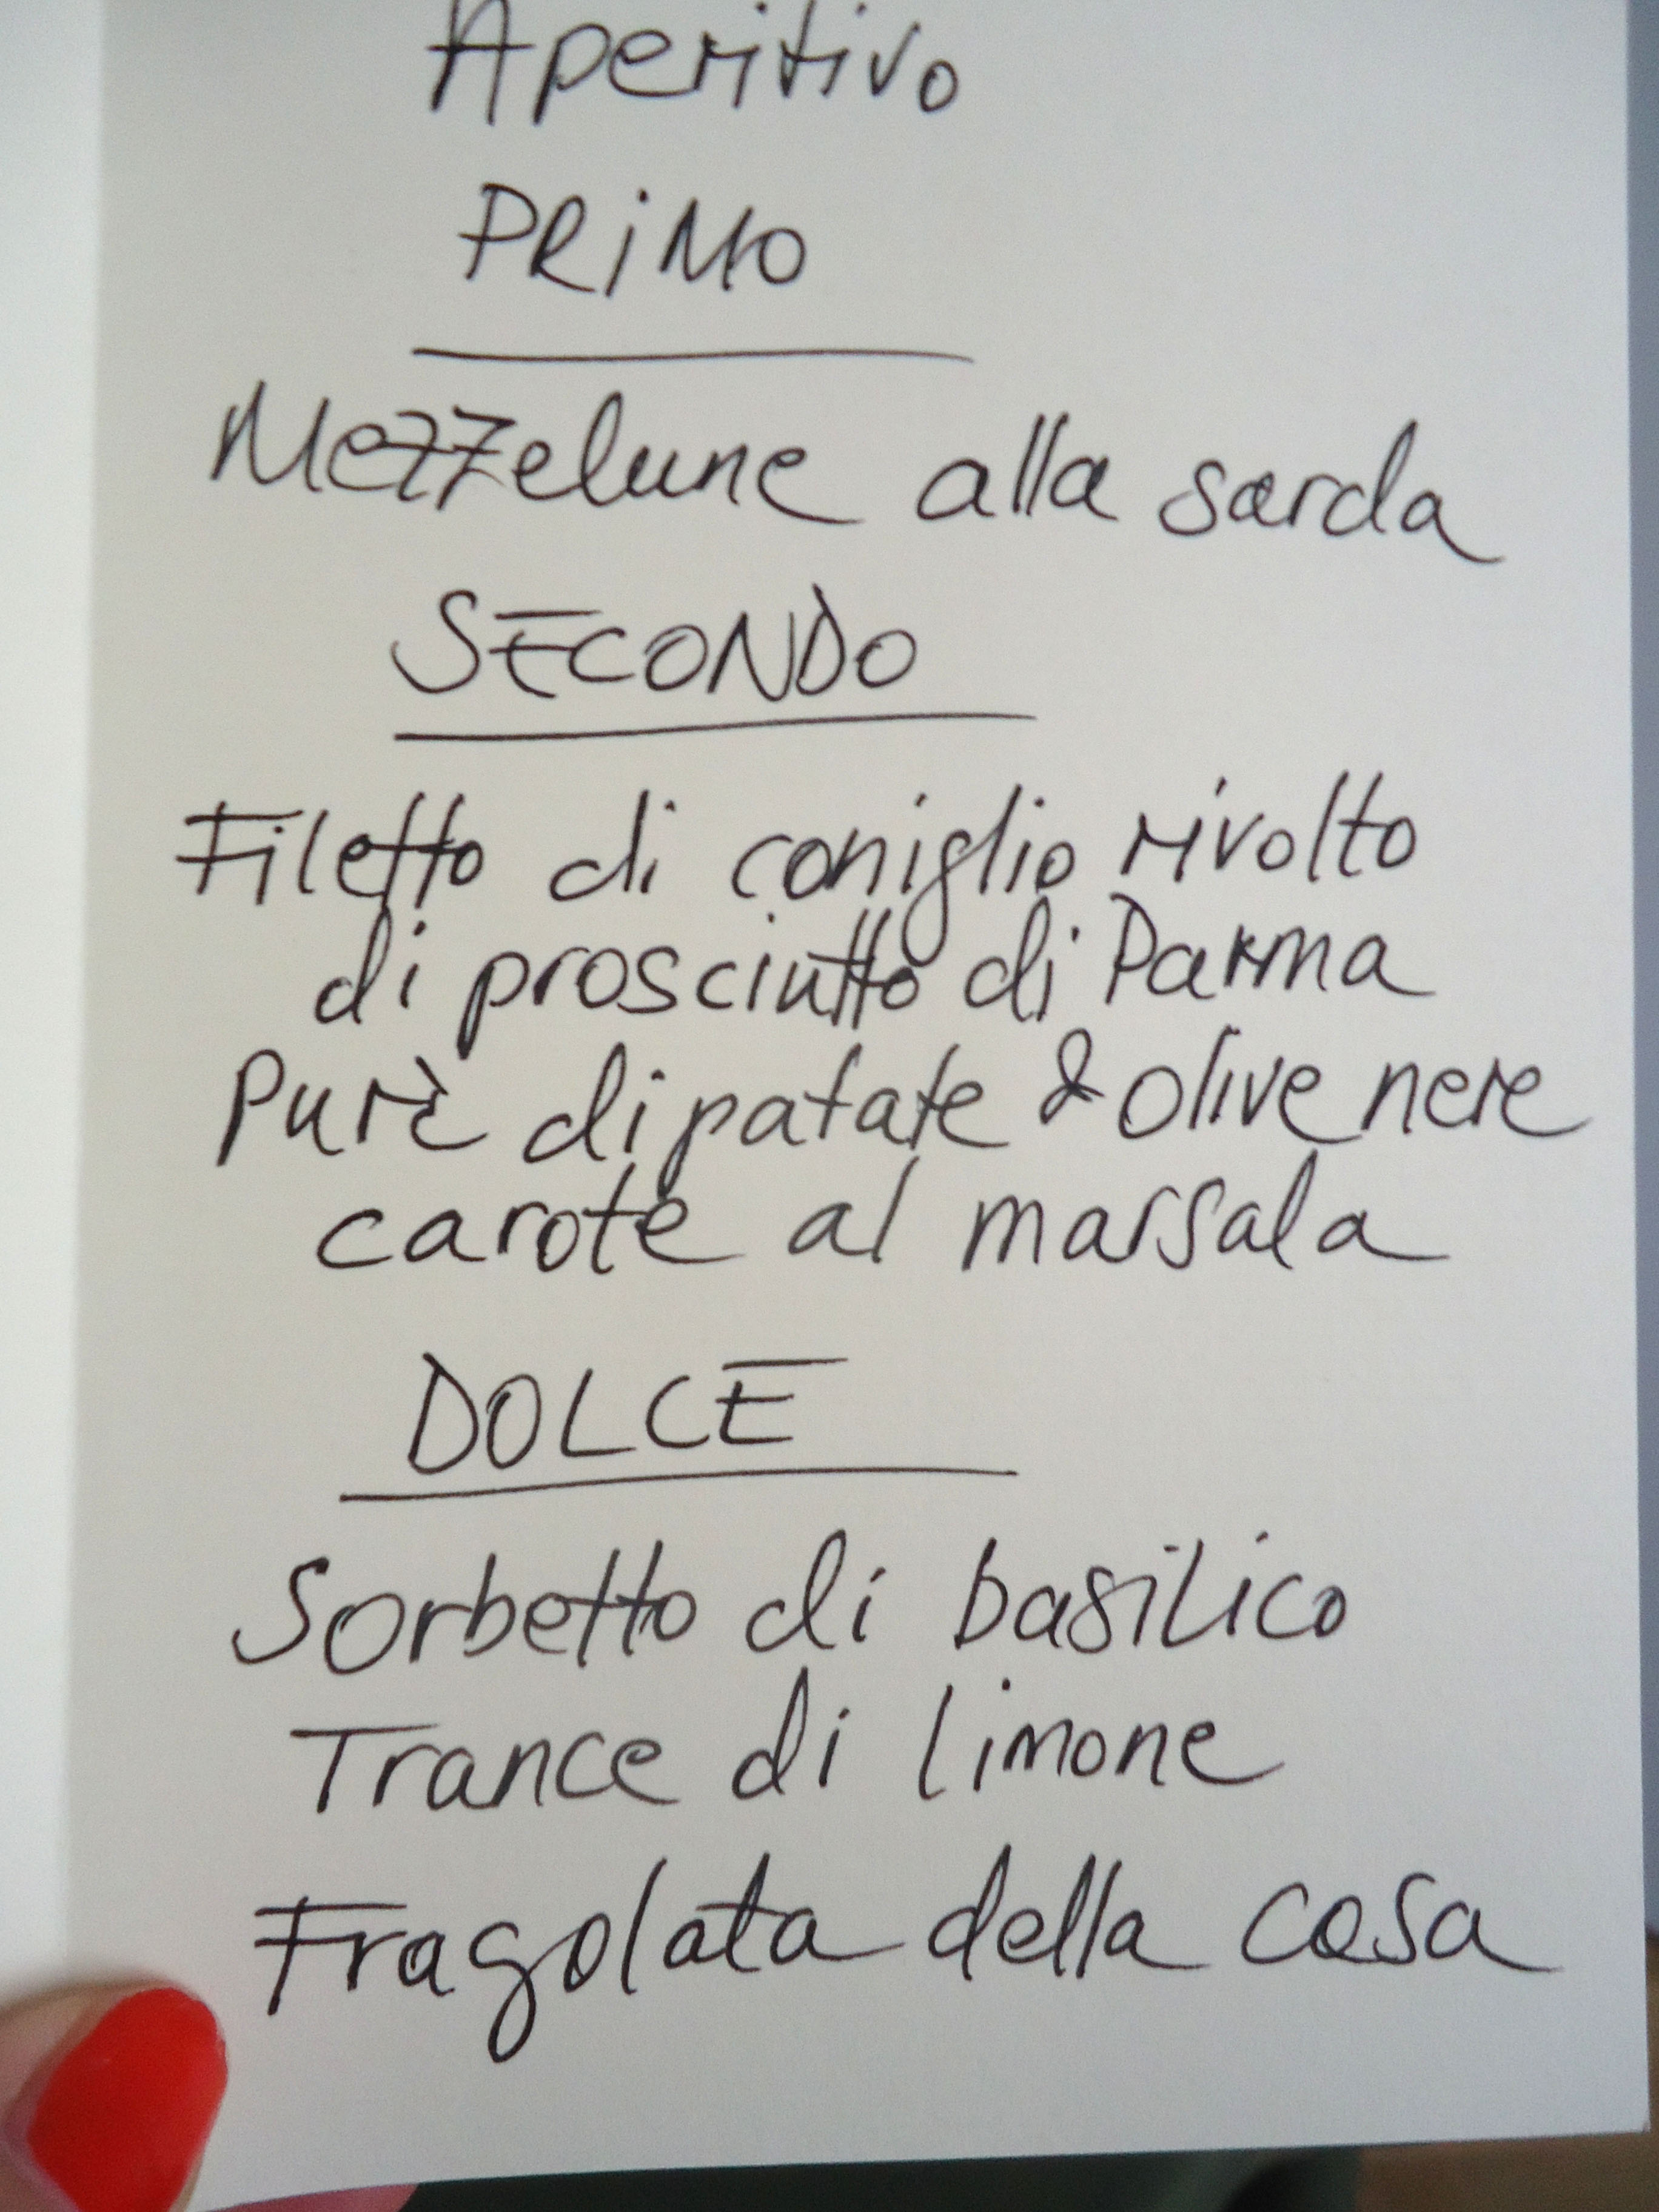 Aperitivo
PRiMO
Mezzelune alla sarda
SECONDO
Filetto di coniglio rivolto
di prosciutto di Parma
Purè di patate & olive nere
carote al marsala
DOLCE
Sorbetto di basilico
Trance di limone
Fragolata della casa